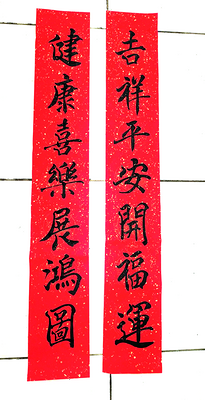 吉祥平安開福運
健康喜樂展鴻圖